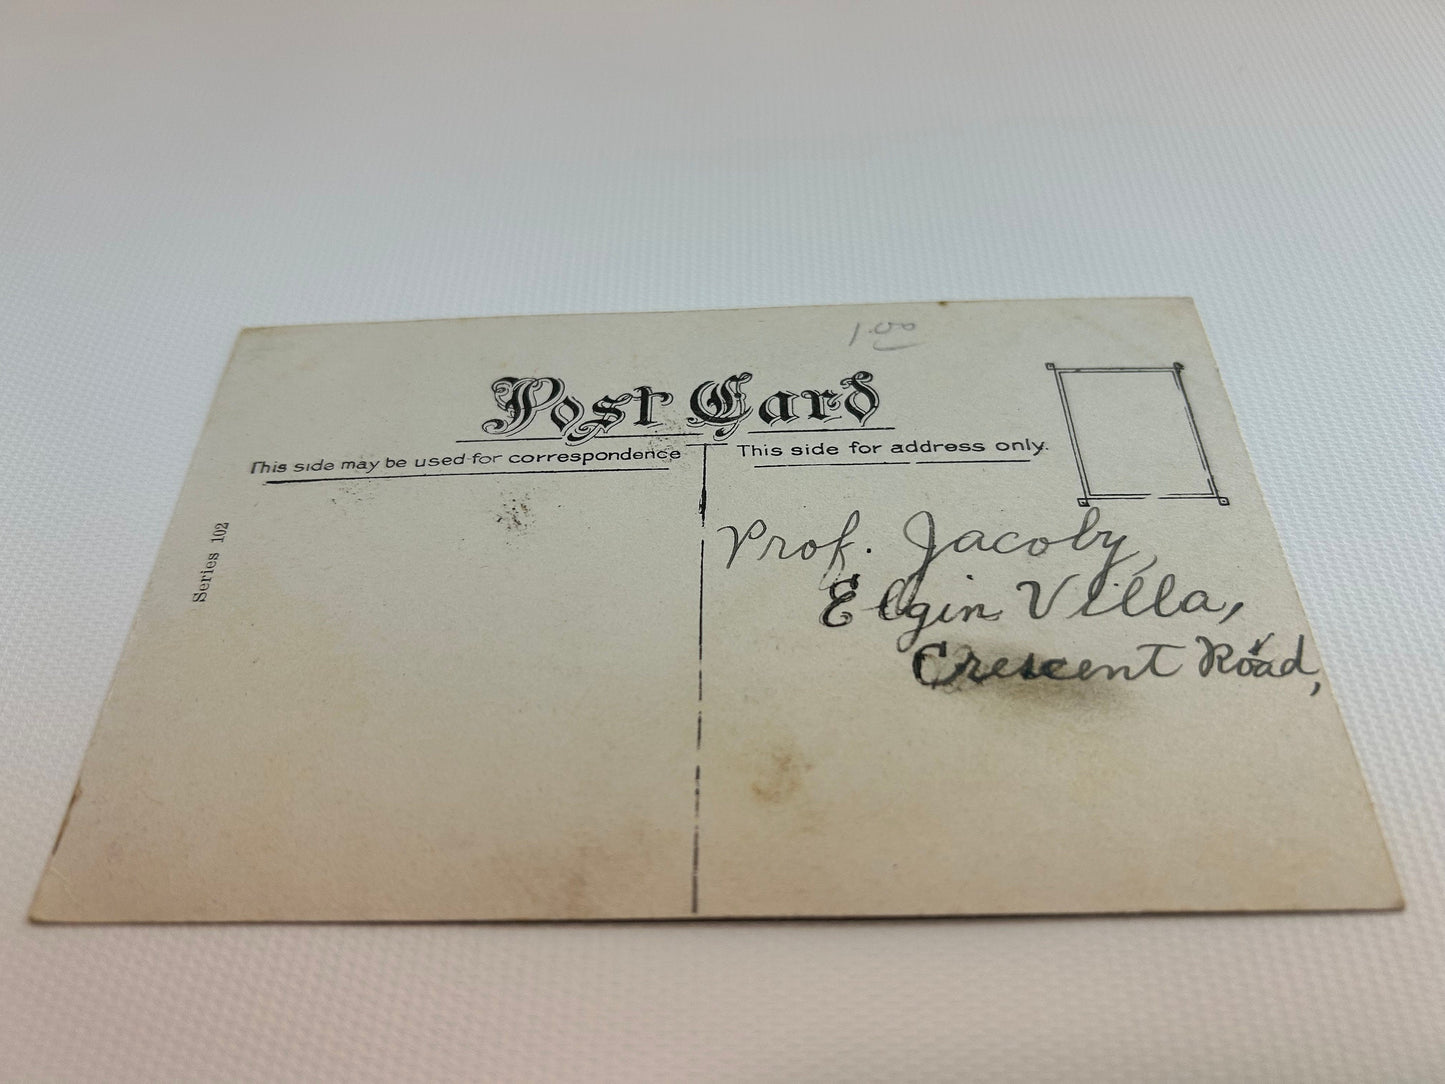 1.00
Post Card
This side may be used for correspondence
This side for address only.
Series 102
Prof. Jacoby,
Elgin Villa,
Crescent Road,